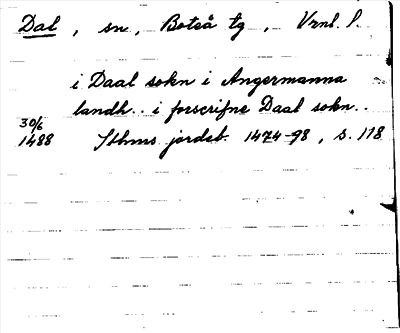 Dal, sn, Boteå tg, Vrnl. l.
i Daal sokn i Angermanna
landh.. i forscrifne Daal sokn..
30/6
1488 Sthms jordeb. 1474-98, s. 118